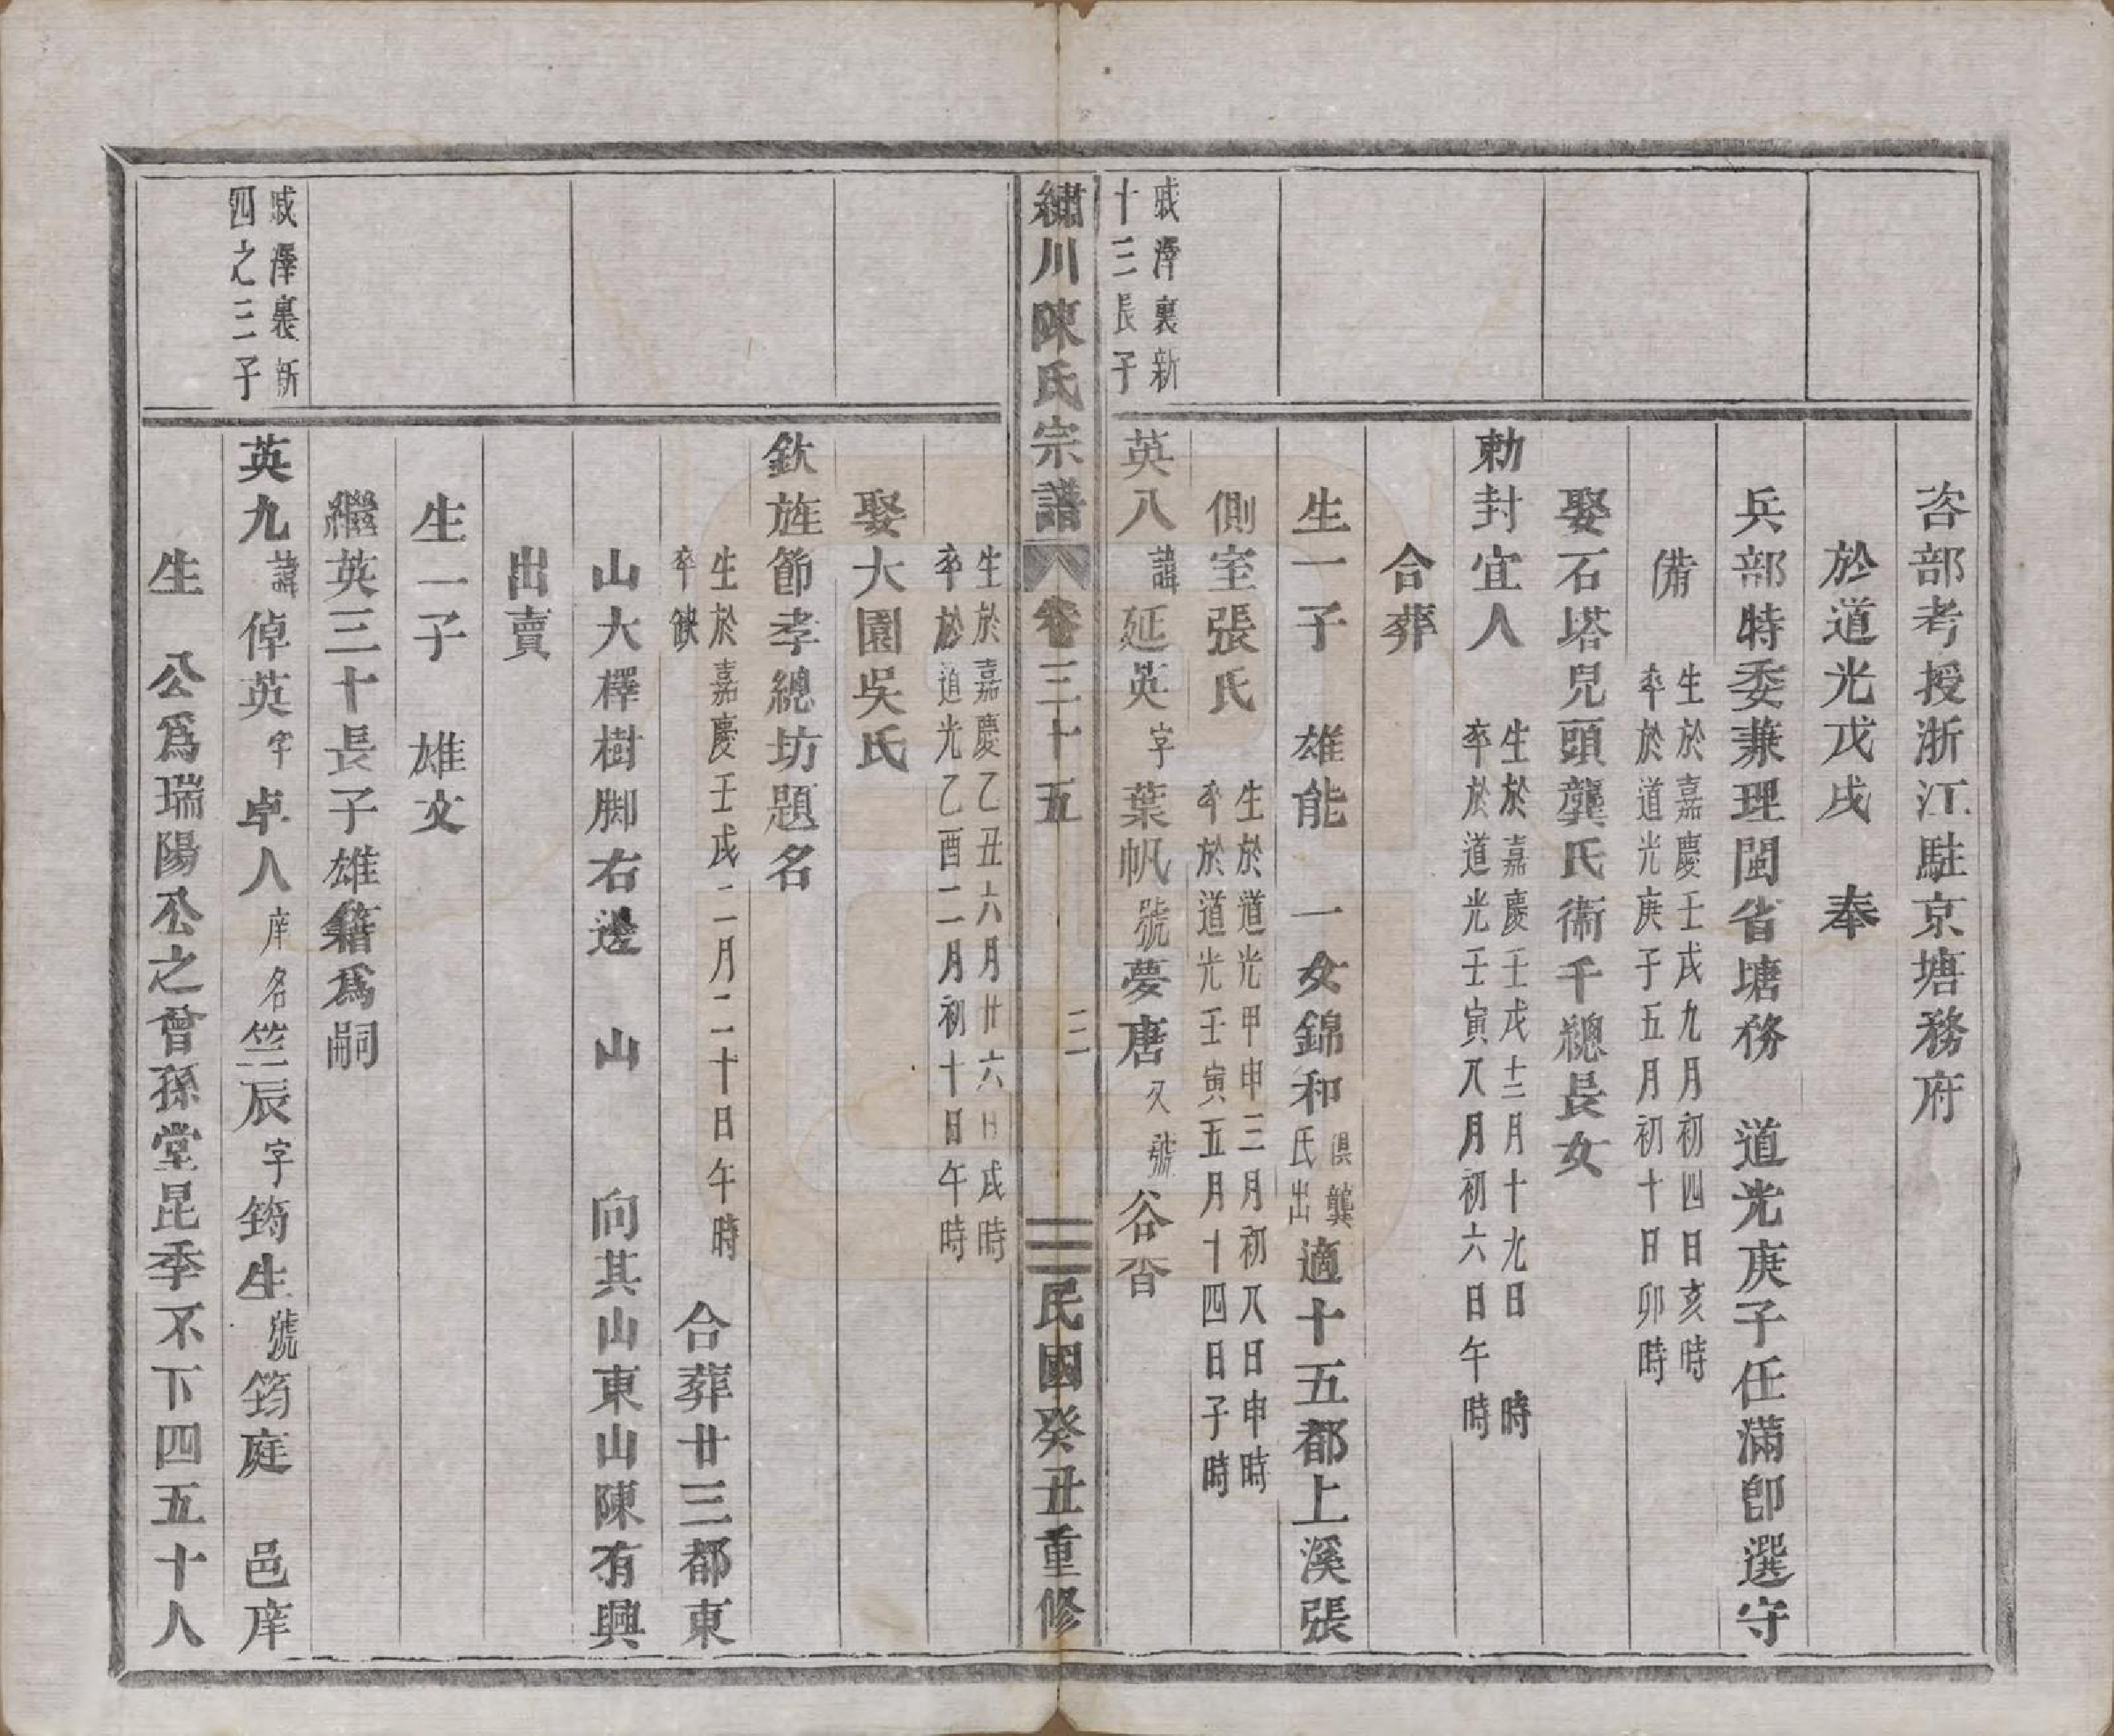 咨部考授浙江駐京塘務府
於道光戊戌　奉
兵部特委兼理閩省塘務　道光庚子任滿卽選守
備
生於嘉慶壬戌九月初四日亥時
卒於道光庚子五月初十日卯時
娶石塔兒頭龔氏衞千總長女
勅封宜人
生於嘉慶壬戌十二月十九日　時
卒於道光壬寅八月初六日午時
合葬
生一子　雄能　一女錦和
俱龔
氏出
適十五都上溪張
側室張氏
生於道光甲申三月初八日申時
卒於道光壬寅五月十四日子時
戚澤裏新
十三長子
英八諱延英字葉帆號夢唐又號谷香
繡川陳氏宗譜　卷三十五　三　民國癸丑重修
生於嘉慶乙丑六月廿六日戌時
卒於道光乙酉二月初十日午時
娶大園吳氏
欽旌節孝總坊題名
生於嘉慶壬戌二月二十日午時
卒缺
合葬廿三都東
山大檡樹脚右邊　山　向其山東山陳有興
出賣
生一子　雄文
繼英三十長子雄籍爲嗣
戚澤裏新
四之三子
英九諱倬英字卓人庠名竺辰字筠生號筠庭　邑庠
生　公爲瑞陽公之曾孫堂昆季不下四五十人